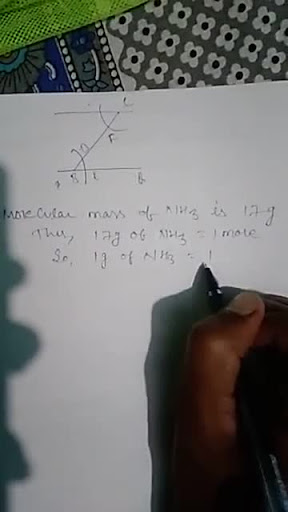 Molecular mass of NH3 is 17g
Thus, 17g of NH3 = 1 mole
So, 1g of NH3 = 1